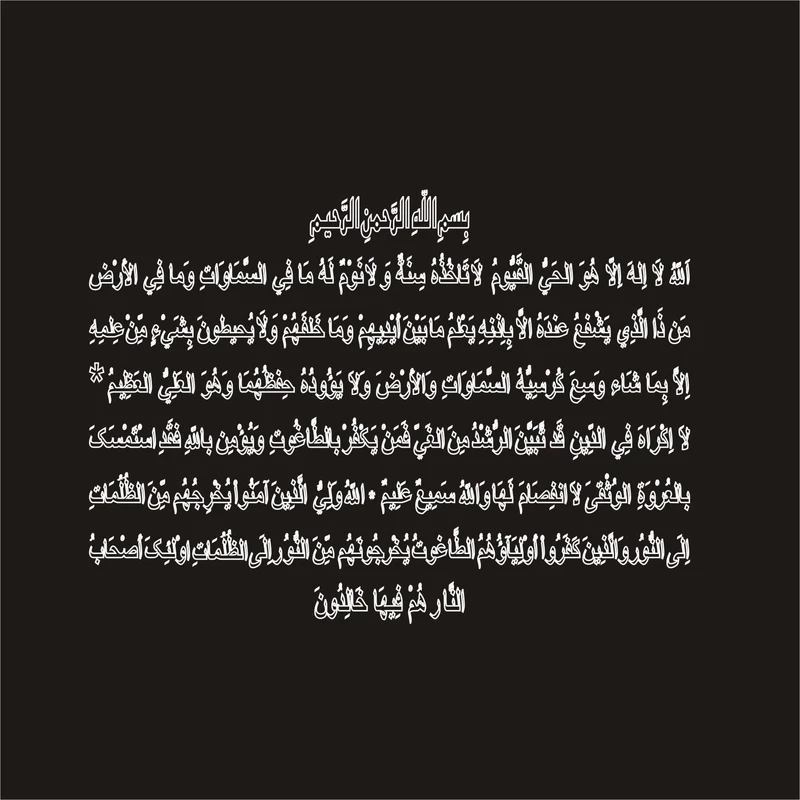 بِسمِ اللّهِ الرَّحمنِ الرَّحیمِ
اَللّهُ لَا اِلهَ اِلّا هُوَ الحَيُّ القَیُّومُ لَا تَاخُذُهُ سِنَةٌ وَ لَا نَوْمٌ لَهُ مَا فِي السَّمَاوَاتِ وَما فِي الأرْض
مَن ذَا الَّذِي يَشْفعُ عندَهُ الاَّ بِإِذنِهِ يَعْلَمُ مَا بَيْنَ أَيْدِيهِمْ وَمَا خَلفَهُمْ وَلَا يُحيطونَ بِشَيْءٍ مِّنْ عِلمِهِ
اِلاَّ بِمَا شَاء وَسِعَ كُرْسِيُّهُ السَّمَاوَاتِ وَالأرْضَ وَلَا يَؤُودُهُ حِفظُهُمَا وَهُوَ العَلِيُّ العَظِيمُ *
لاَ اِكْرَاهَ فِي الدِّينِ قَد تَّبَيَّنَ الرُّشْدُ مِنَ الغَيِّ فَمَنْ يَكفُرْ بالطَّاغُوتِ وَيُؤْمِن باللّهِ فَقَدِ اسْتَمْسَکَ
بالعُرْوَةِ الوُثْقَىَ لاَ انفِصَامَ لَهَا وَاللّهُ سَمِيعٌ عَلِيمٌ * اللّهُ وَلِيُّ الَّذِينَ آمَنُواْ يُخْرِجُهُم مِّنَ الظُلُمَاتِ
إِلَى النُّوُرِ وَالَّذِينَ كَفَرُواْ أَوْلِيَآؤُهُمُ الطَّاغوتُ يُخْرِجُونَهُم مِّنَ النُّوُرِ إِلَى الظُلُمَاتِ اوْلئِکَ أصْحَابُ
النَّارِ هُمْ فِيهَا خَالِدُونَ